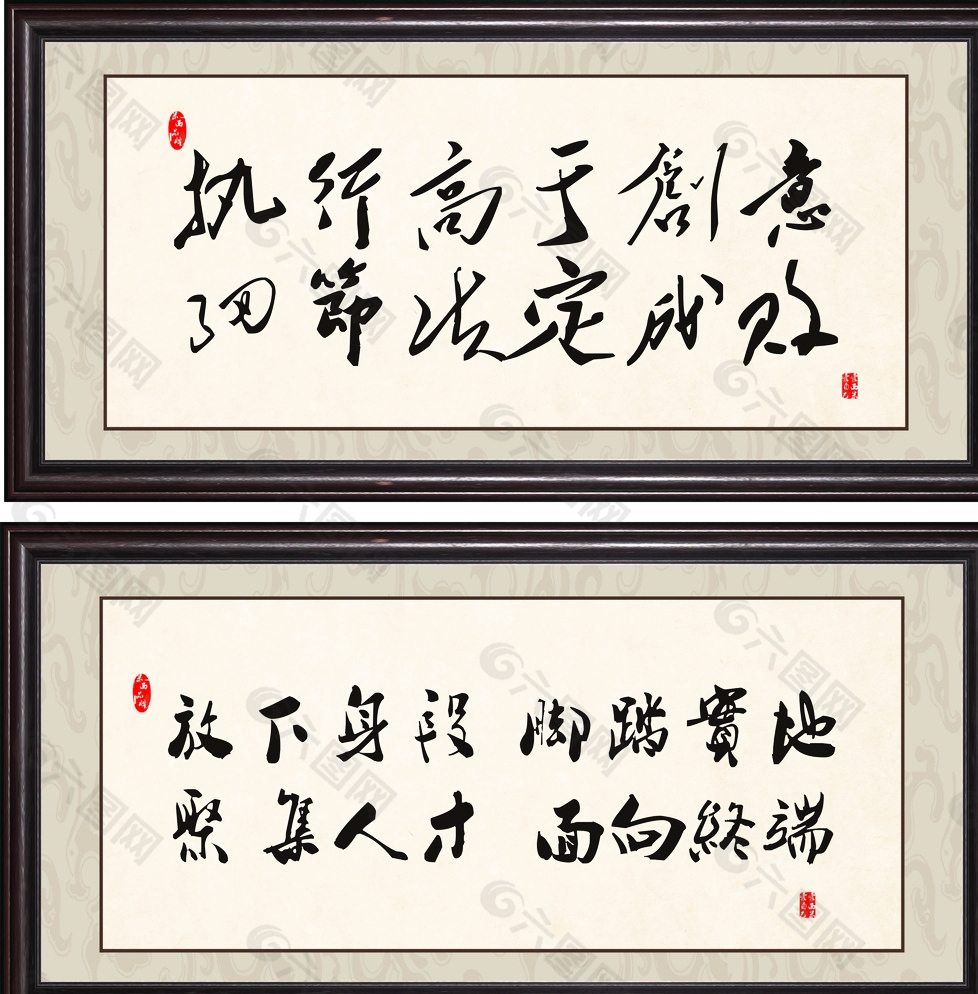 执行高于創意
细節決定成败
放下身段 脚踏實地
聚集人才 面向終端
六图网